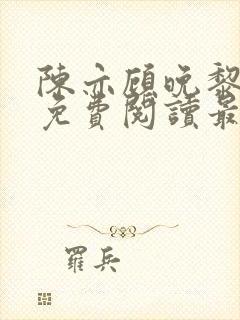 陳亦顧晚黎
免費閱讀最
羅兵